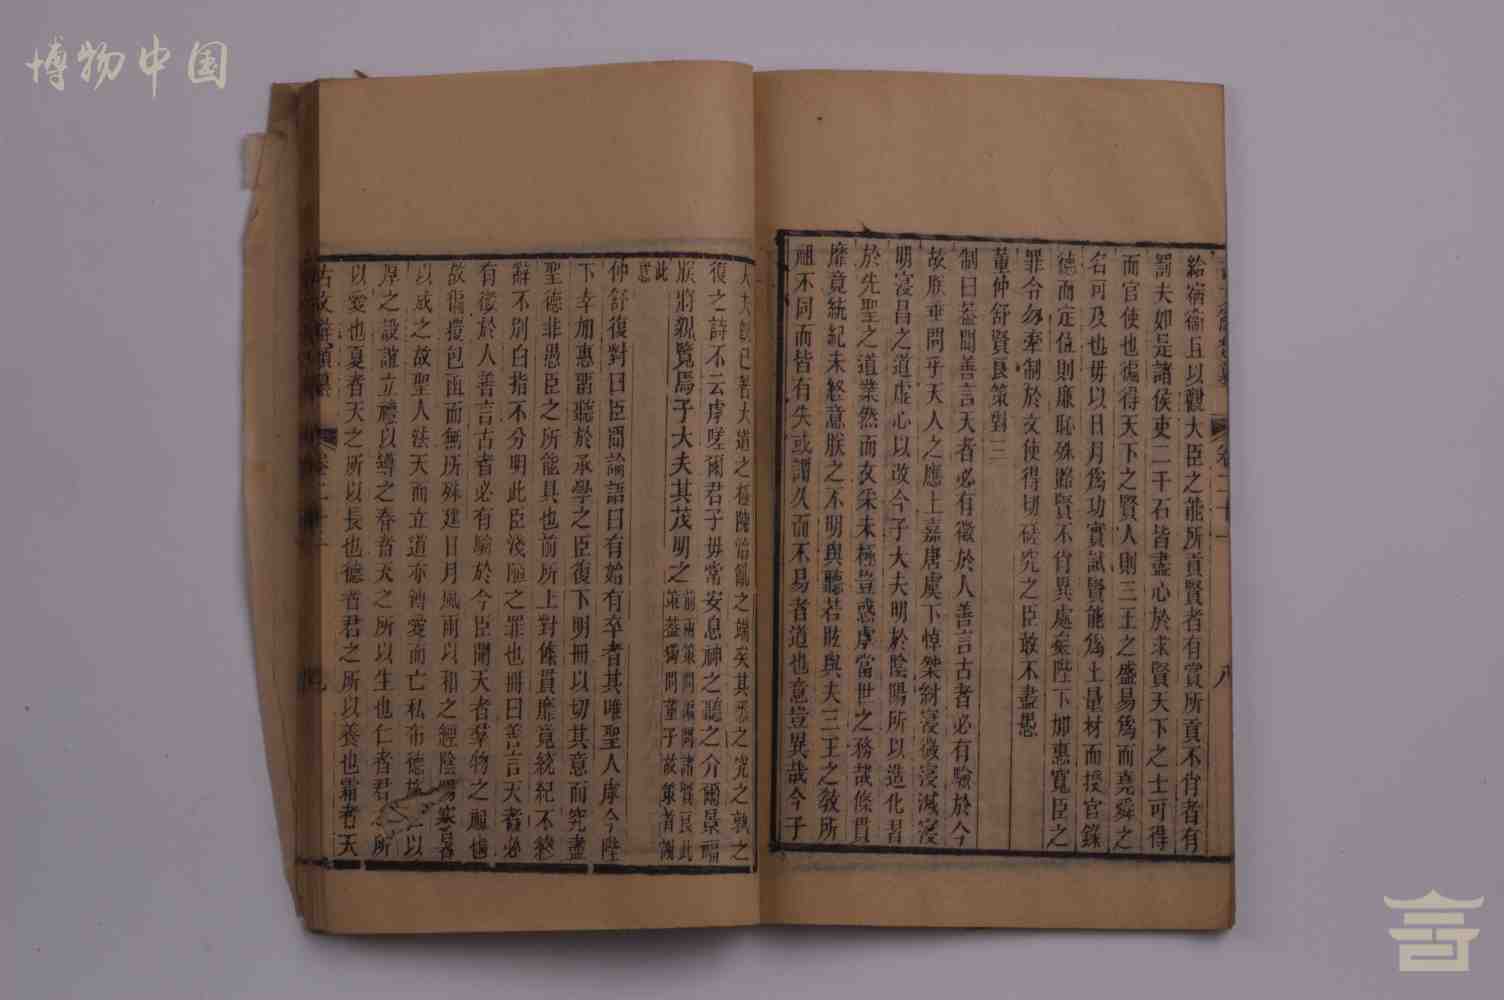 博物中国
給宿衞且以觀大臣之能所貢賢者有賞所貢不肖者有
罰夫如是諸侯吏二千石皆盡心於求賢天下之士可得
而官使也徧得天下之賢人則三王之盛易爲而堯舜之
名可及也毋以日月爲功實試賢能爲上量材而授官錄
德而定位則廉恥殊路賢不肖異處矣陛下加惠寬臣之
罪令勿牽制於文使得切磋究之臣敢不盡愚
董仲舒賢良策對三
制曰蓋聞善言天者必有徵於人善言古者必有驗於今
故朕垂問乎天人之應上嘉唐虞下悼桀紂寖微寖滅寖
明寖昌之道虛心以改今子大夫明於陰陽所以造化習
於先聖之道業然而文采未極豈惑虖當世之務哉條貫
靡竟統紀未終意朕之不明與聽若眩與夫三王之教所
祖不同而皆有失或謂久而不易者道也意豈異哉今子
大夫既已著大道之極陳治亂之端矣其悉之究之孰之
復之詩不云虖嗟爾君子毋常安息神之聽之介爾景福
朕將親覽焉子大夫其茂明之
前兩策問徧問諸賢良此
策蓋獨問董子故策者
此意
仲舒復對曰臣聞論語曰有始有卒者其唯聖人虖今陛
下幸加惠留聽於承學之臣復下明冊以切其意而究盡
聖德非愚臣之所能具也前所上對條貫靡竟統紀不終
辭不別白指不分明此臣淺陋之罪也冊曰善言天者必
有徵於人善言古者必有驗於今臣聞天者羣物之祖也
故徧覆包函而無所殊建日月風雨以和之經陰陽寒暑
以成之故聖人法天而立道亦溥愛而亡私布德施以
厚之設誼立禮以導之春者天之所以生也仁者君之所
以愛也夏者天之所以長也德者君之所以養也霜者天
古文辭類纂 卷二十二 九